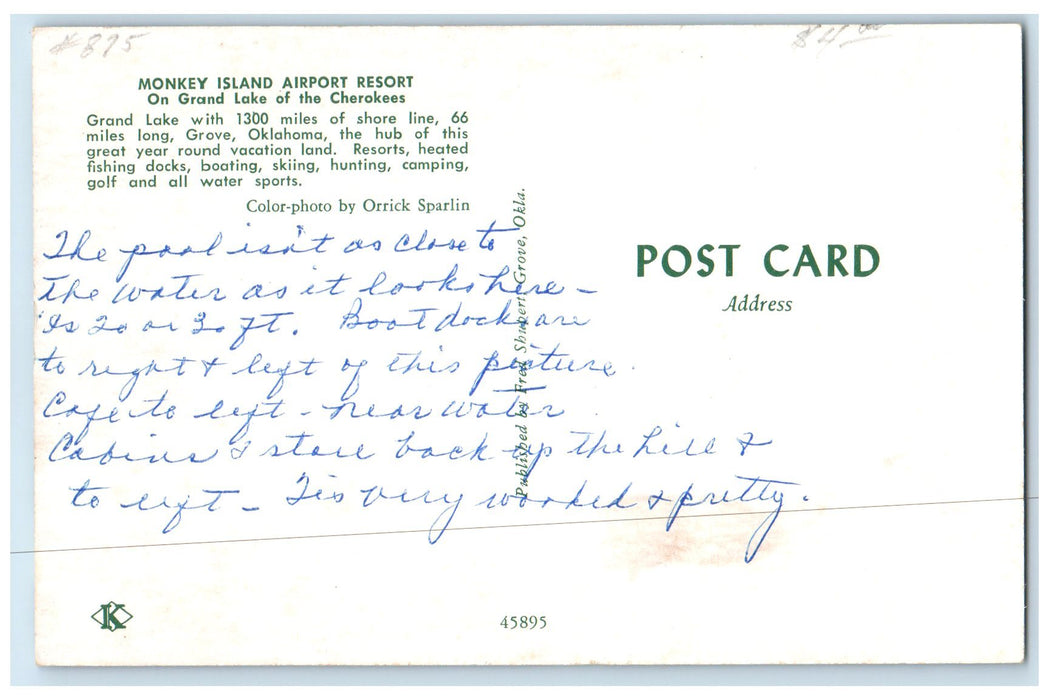 #895
$4.00
MONKEY ISLAND AIRPORT RESORT
On Grand Lake of the Cherokees
Grand Lake with 1300 miles of shore line, 66
miles long, Grove, Oklahoma, the hub of this
great year round vacation land. Resorts, heated
fishing docks, boating, skiing, hunting, camping,
golf and all water sports.
Color-photo by Orrick Sparlin
The pool isn't as close to
the water as it looks here -
Is 20 or 30 ft. Boat docks are
to right & left of this picture.
Cafe to left - near water
Cabins & store back up the hill &
to left - Tis very wooded & pretty.
Published by Fred Shupert, Grove, Okla.
POST CARD
Address
K
45895